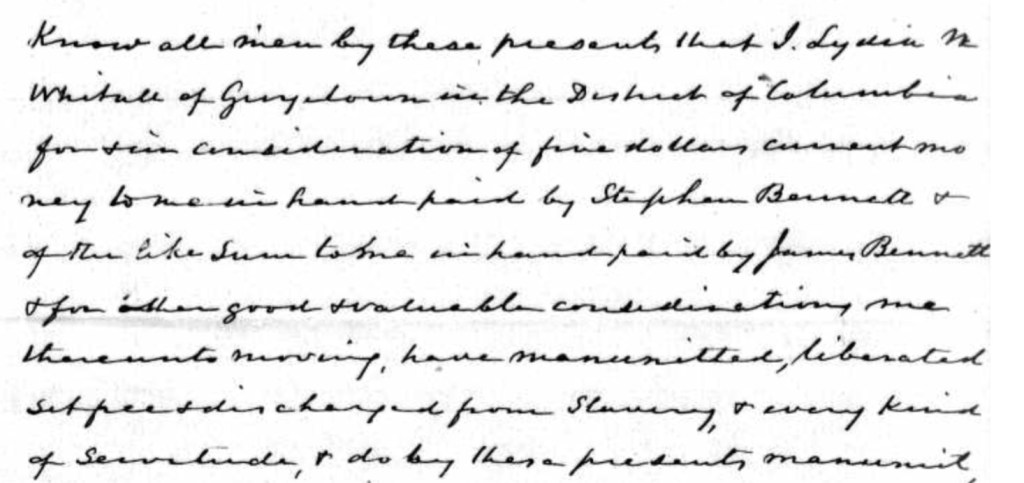 Know all men by these presents that I. Lydia M
Whitall of Georgetown in the District of Columbia
for & in consideration of five dollars current mo
ney to me in hand paid by Stephen Bennett &
of the like Sum to me in hand paid by James Bennett
& for other good & valuable considerations me
thereunto moving, have manumitted, liberated
set free & discharged from Slavery, & every kind
of Servitude, & do by these presents manumit,